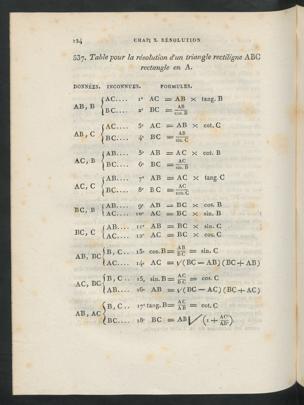 124 CHAP. X. RÉSOLUTION
537. Table pour la résolution d'un triangle rectiligne ABC
rectangle en A.
DONNÉES. INCONNUES. FORMULES.
AB, B { AC.... 1° AC = AB × tang. B
BC.... 2° BC = AB / cos. B
AB, C { AC.... 3° AC = AB × cot. C
BC.... 4° BC = AB / sin. C
AC, B { AB.... 5° AB = AC × cot. B
BC.... 6° BC = AC / sin. B
AC, C { AB.... 7° AB = AC × tang. C
BC.... 8° BC = AC / cos. C
BC, B { AB.... 9° AB = BC × cos. B
AC.... 10° AC = BC × sin. B
BC, C { AB.... 11° AB = BC × sin. C
AC.... 12° AC = BC × cos. C
AB, BC { B, C.. 13° cos. B = AB / BC = sin. C
AC.... 14° AC = √(BC − AB) (BC + AB)
AC, BC { B, C.. 15° sin. B = AC / BC = cos. C
AB.... 16° AB = √(BC − AC) (BC + AC)
AB, AC { B, C.. 17° tang. B = AC / AB = cot. C
BC.... 18° BC = AB √(1 + AC² / AB²)